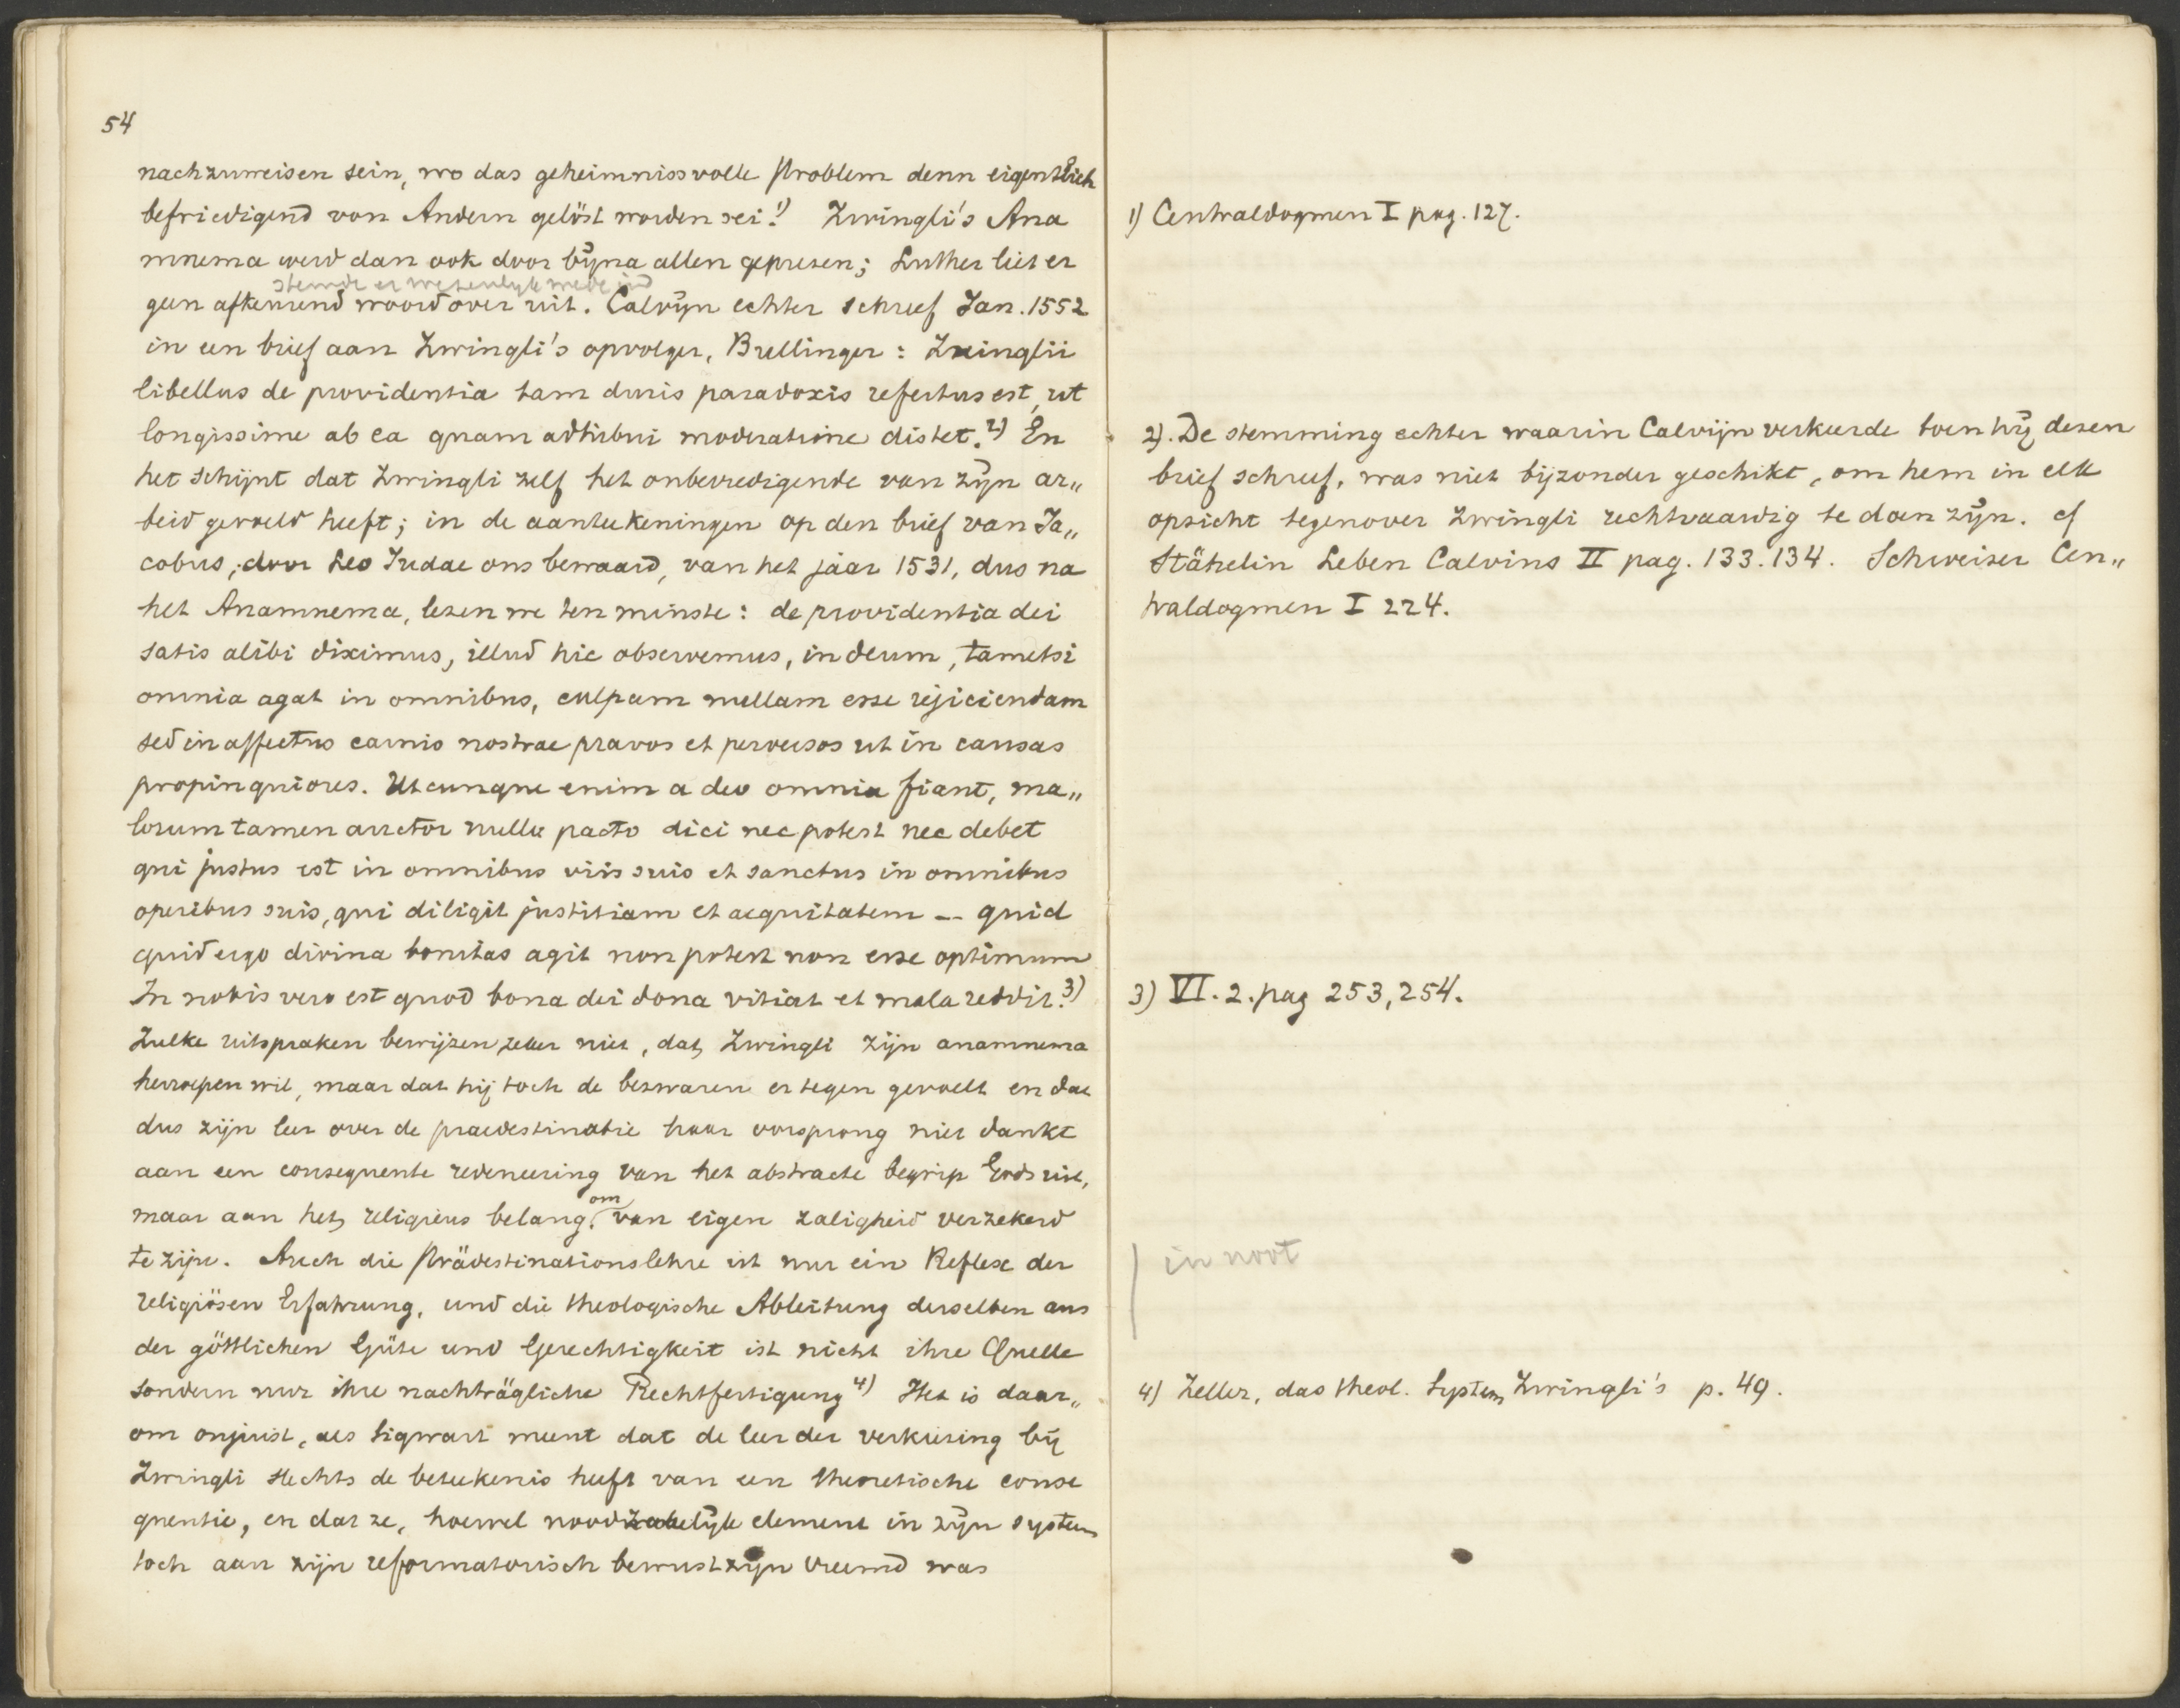 54
nachzuweisen sein, wo das geheimnissvolle Problem denn eigentlich
befriedigend von Andern gelöst worden sei.1) Zwingli's Ana
mnema werd dan ook door bijna allen geprezen; Luther liet er
stemde er wezenlijk mede in
geen afkeurend woord over uit. Calvijn echter schreef Jan. 1552
in een brief aan Zwingli's opvolger, Bullinger: Zuinglii
libellus de providentia tam duris paradoxis refertus est, ut
longissime ab ea quam adhibui moderatione distet.2) En
het schijnt dat Zwingli zelf het onbevredigende van zijn ar„
beid gevoeld heeft; in de aanteekeningen op den brief van Ja„
cobus, door Leo Judae ons bewaard, van het jaar 1531, dus na
het Anamnema, lezen we ten minste: de providentia dei
satis alibi diximus, illud hic observemus, in deum, tametsi
omnia agat in omnibus, culpam nullam esse rejiciendam
sed in affectus carnis nostrae pravos et perversos ut in causas
propinquiores. Utcunque enim a deo omnia fiant, ma„
lorum tamen auctor nullo pacto dici nec potest nec debet
qui justus est in omnibus viis suis et sanctus in omnibus
operibus suis, qui diligit justitiam et aequitatem -- quid
quid ergo divina bonitas agit non potest non esse optimum
In nobis vero est quod bona dei dona vitiat et mala reddit.3)
Zulke uitspraken bewijzen zeker niet, dat Zwingli zijn anamnema
herroepen wil, maar dat hij toch de bezwaren er tegen gevoelt en dat
dus zijn leer over de praedestinatie haar oorsprong niet dankt
aan een consequente redeneering van het abstracte begrip Gods uit,
maar aan het religieus belang, om van eigen zaligheid verzekerd
te zijn. Auch die Prädestinationslehre ist nur ein Reflex der
religiösen Erfahrung, und die theologische Ableitung derselben aus
der göttlichen Güte und Gerechtigkeit ist nicht ihre Quelle
sondern nur ihre nachträgliche Rechtfertigung 4) Het is daar„
om onjuist, als Sigwart meent dat de leer der verkiezing bij
Zwingli slechts de beteekenis heeft van een theoretische conse
quentie, en dat ze, hoewel noodzakelijk element in zijn systeem
toch aan zijn reformatorisch bewustzijn vreemd was
1) Centraldogmen I pag. 127.
2). De stemming echter waarin Calvijn verkeerde toen hij dezen
brief schreef, was niet bijzonder geschikt, om hem in elk
opzicht tegenover Zwingli rechtvaardig te doen zijn. cf
Stähelin Leben Calvins II pag. 133. 134. Schweizer Cen„
traldogmen I 224.
3) VI. 2. pag 253, 254.
in noot
4) Zeller, das theol. System Zwingli's p. 49.